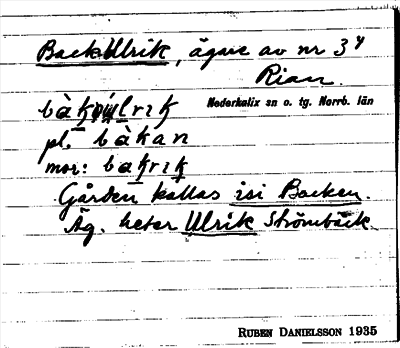 BackUlrik, ägare av nr 3⁴
Rian.
Nederkalix sn o. tg. Norrb. län
pl. bàkan
mor: bakrik
Gården kallas isi Backen.
Äg. heter Ulrik Strömbäck.
RUBEN DANIELSSON 1935